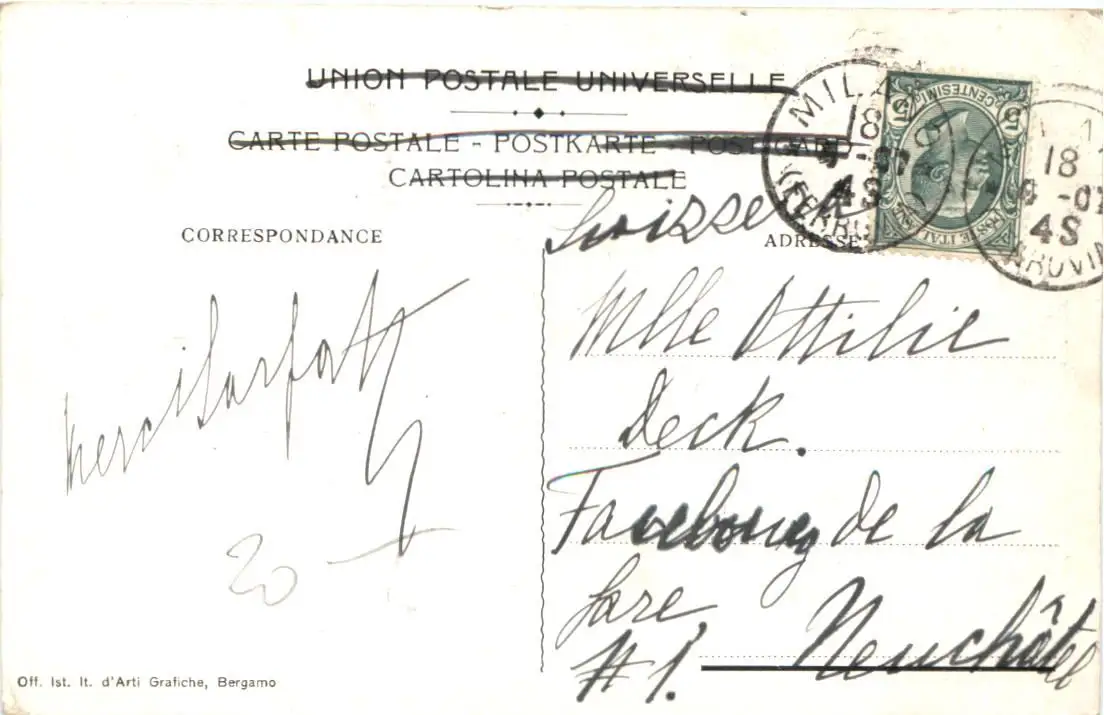 UNION POSTALE UNIVERSELLE
CARTE POSTALE - POSTKARTE - POST CARD
CARTOLINA POSTALE
CORRESPONDANCE
ADRESSE
MILANO
18
9 - 07
4S
(FERROVIA)
5 CENTESIMI 5
POSTE ITALIANE
18
9 - 07
4S
Suisse
Mlle Ottilie
Deck.
Faubourg de la
Gare,
# 1. Neuchâtel
merci
20
Off. Ist. It. d'Arti Grafiche, Bergamo